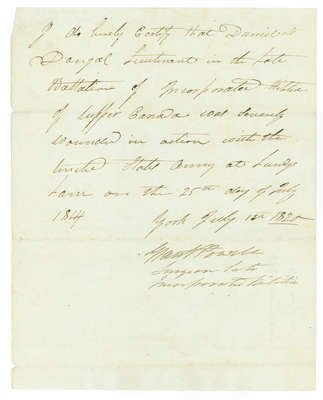 I do hereby Certify that Daniel M
Dougal Lieutenant in the late
Battalion of Incorporated Militia
of Upper Canada was severely
wounded in action with the
United States Army at Lundys
Lane on the 25th day of July
1814
York July 1820
Grant Powell
Surgeon late
Incorporated Militia